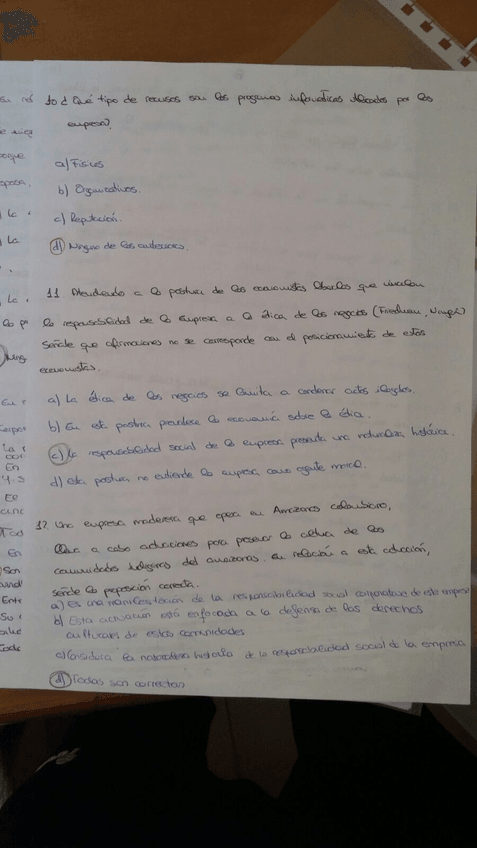 10 ¿Qué tipo de recursos son los programas informaticos utilizados por las
empresas?
a) Físicos
b) Organizativos.
c) Reputación.
d) Ninguno de los anteriores.
11. Atendiendo a la postura de los economistas liberales que vinculan
la responsabilidad de la empresa a la ética de los negocios (Friedman,
Señale que afirmaciones no se corresponde con el posicionamiento de estos
economistas.
a) La ética de los negocios se limita a condenar actos ilegales.
b) En esta postura prevalece la economía sobre la ética.
c) La responsabilidad social de la empresa presenta una naturaleza histórica.
d) Esta postura no entiende la empresa como agente moral.
12 Una empresa maderera que opera en Amazonas colombiano,
lleva a cabo actuaciones para preservar la cultura de las
comunidades indígenas del amazonas. en relación a esta actuación,
señale la proposición correcta.
a) Es una manifestación de la responsabilidad social corporativa de esta empresa
b) Esta actuación está enfocada a la defensa de los derechos
culturales de estas comunidades
c) Considera la naturaleza histórica de la responsabilidad social de la empresa
d) Todas son correctas